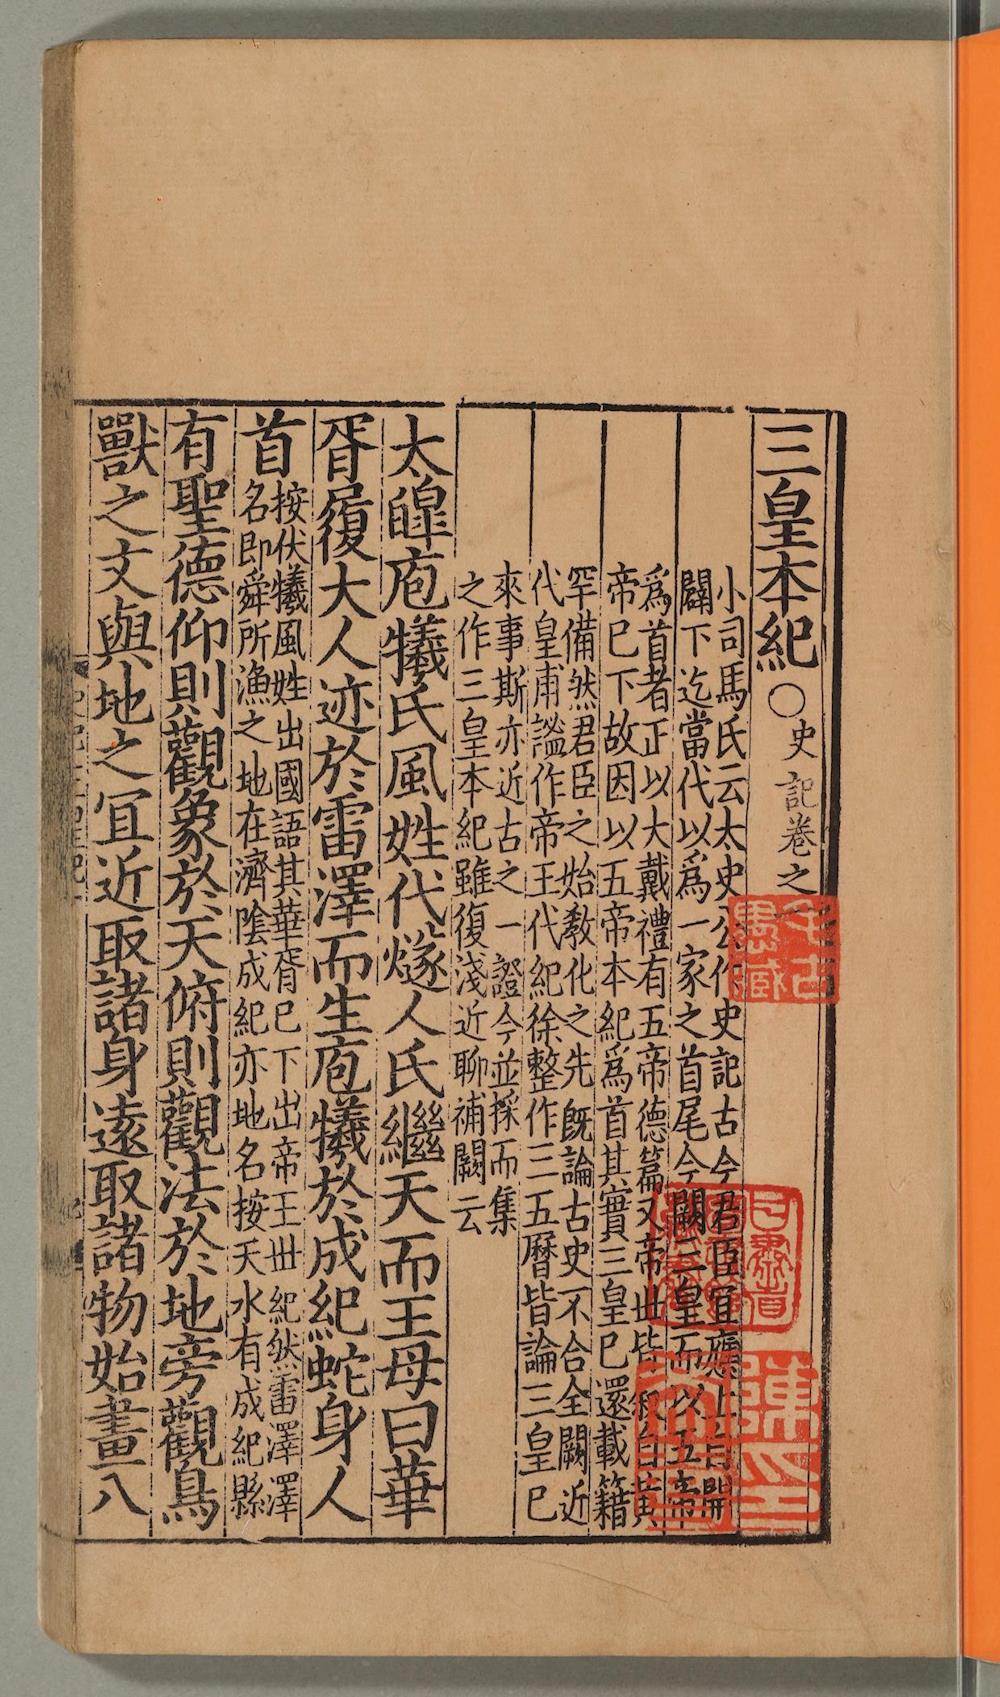 三皇本紀○史記卷之
小司馬氏云太史公作史記古今君臣宜應上自開
闢下迄當代以爲一家之首尾今闕三皇而以五帝
爲首者正以大戴禮有五帝德篇又帝世皆叙自黃
帝已下故因以五帝本紀爲首其實三皇已還載籍
罕備然君臣之始敎化之先旣論古史不合全闕近
代皇甫謐作帝王代紀徐整作三五曆皆論三皇已
來事斯亦近古之一證今並採而集
之作三皇本紀雖復淺近聊補闕云
太皥庖犧氏風姓代燧人氏繼天而王母曰華
胥履大人迹於雷澤而生庖犧於成紀蛇身人
首
按伏犧風姓出國語其華胥已下出帝王世紀然雷澤澤
名即舜所漁之地在濟陰成紀亦地名按天水有成紀縣
有聖德仰則觀象於天俯則觀法於地旁觀鳥
獸之文與地之宜近取諸身遠取諸物始畫八